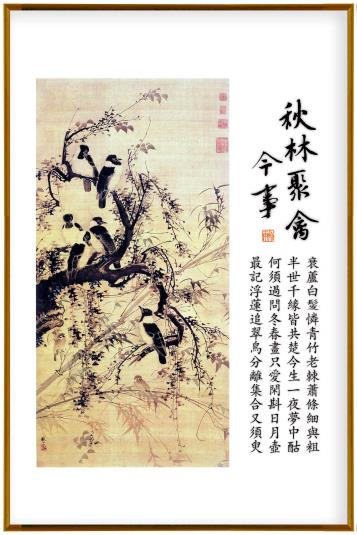 秋林聚禽
今事
衰蘆白髮憐青竹老棘蕭條細與粗
半世千緣皆共楚今生一夜夢中酤
何須過問冬春畫只愛閑斟日月壺
最記浮蓮追翠鳥分離集合又須臾